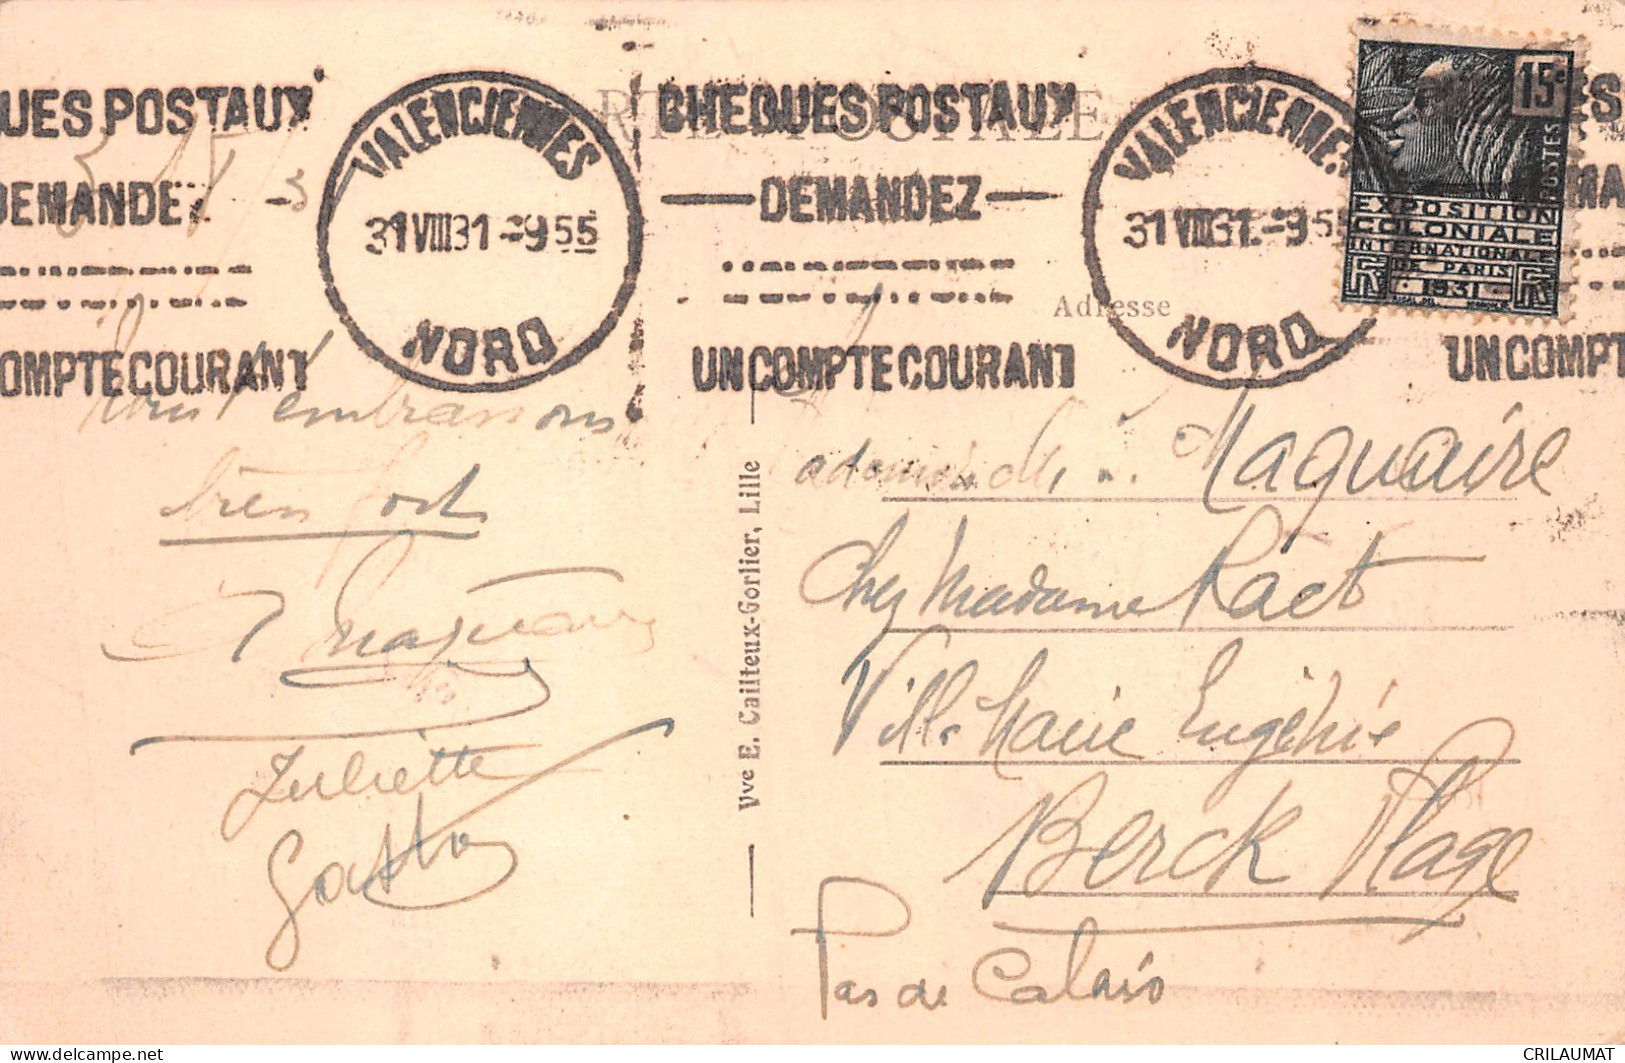 UES POSTAUX
DEMANDEZ
COMPTE COURANT
VALENCIENNES
31 VIII 31 - 9 55
NORD
CARTE POSTALE
CHEQUES POSTAUX
DEMANDEZ
UN COMPTE COURANT
VALENCIENNES
31 VIII 31 - 9 55
NORD
15c
POSTES
EXPOSITION
COLONIALE
INTERNATIONALE
DE PARIS
1931
RF RF
ES
MA
UN COMPT
Adresse
31/8
embrassons
bien fort
Maquaire
Juliette
Gaston
Vve E. Cailteux-Gorlier, Lille
Mademoiselle Maquaire
Chez Madame Raet
Villa Marie Eugénie
Berck Plage
Pas de Calais
delcampe.net
CRILAUMAT